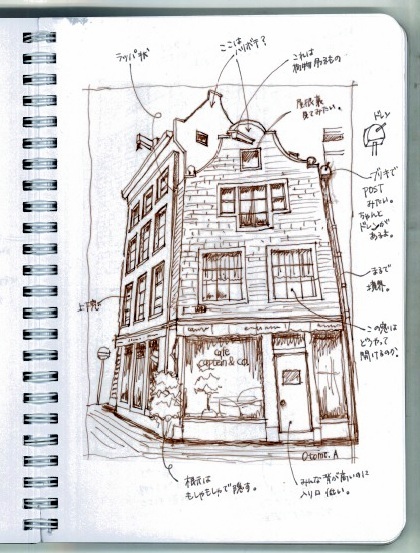 ラッパ状
ここは
ハリボテ？
これは
荷物吊るもの
屋根裏
見てみたい。
ドレン
ブリキで
POST
みたい。
ちゃんと
ドレンが
あるよ。
まるで
境界。
上下窓
この窓は
どうやって
開けるのか?
cafe
captain & co.
Otome. A
根元は
もしゃもしゃで隠す。
みんな背が高いのに
入り口 低い。